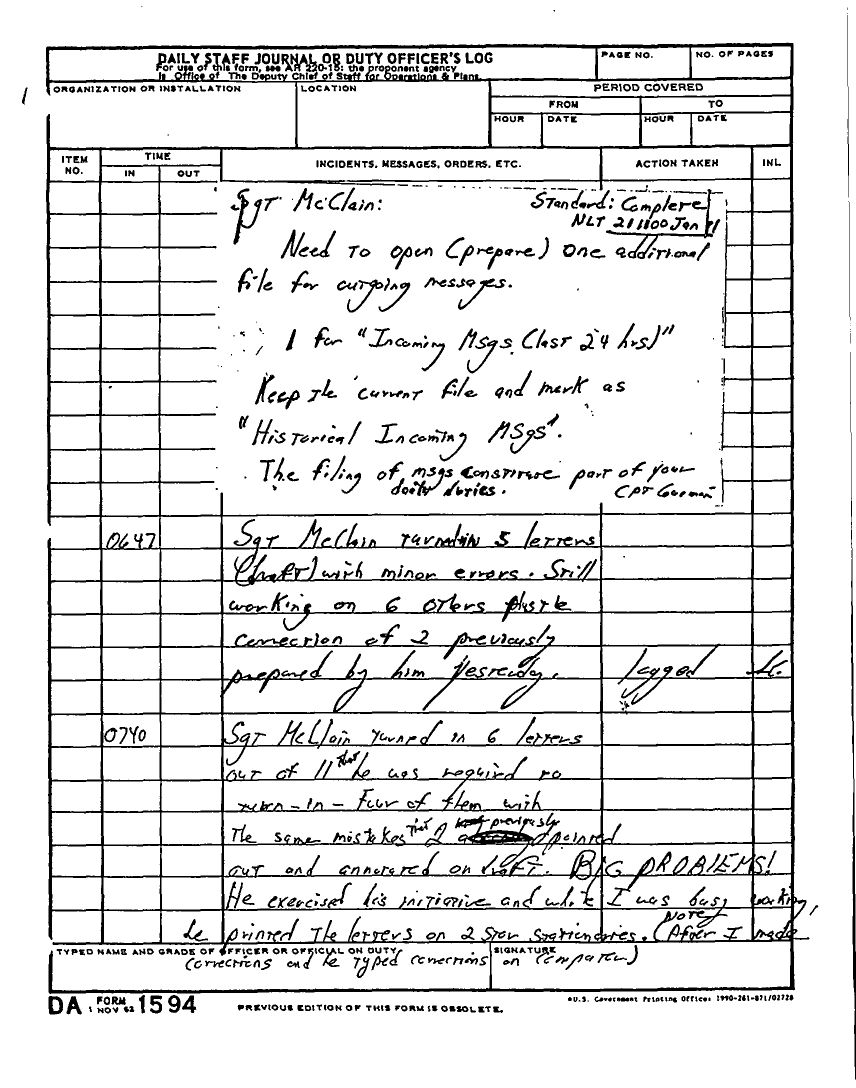 DAILY STAFF JOURNAL OR DUTY OFFICER'S LOG
For use of this form, see AR 220-15: the proponent agency
is Office of The Deputy Chief of Staff for Operations & Plans.
PAGE NO.
NO. OF PAGES
ORGANIZATION OR INSTALLATION
LOCATION
PERIOD COVERED
FROM
TO
HOUR
DATE
HOUR
DATE
ITEM NO.
TIME
IN
OUT
INCIDENTS, MESSAGES, ORDERS, ETC.
ACTION TAKEN
INL
Sgt McClain:
Standard: Complete
NLT 211800 Jan 91
Need to open (prepare) one additional
file for outgoing messages.
1 for "Incoming Msgs (last 24 hrs)"
Keep the current file and mark as
"Historical Incoming MSgs".
The filing of msgs constitute part of your
daily duties.
CPT
0647
Sgt McClain turned in 5 letters
(draft) with minor errors. Still
working on 6 others plus the
correction of 2 previously
prepared by him yesterday.
logged
0740
Sgt McClain turned in 6 letters
out of 11 that he was required to
turn-in - Four of them with
the same mistakes that I previously pointed
out and annotated on draft. BIG PROBLEMS!
He exercised his initiative and while I was busy working,
he printed the letters on 2 Star Stationaries. (Note) (After I made
TYPED NAME AND GRADE OF OFFICER OR OFFICIAL ON DUTY
SIGNATURE
corrections and he typed corrections on computer)
DA FORM 1594
1 NOV 62
PREVIOUS EDITION OF THIS FORM IS OBSOLETE.
U.S. Government Printing Office: 1990-261-871/02728